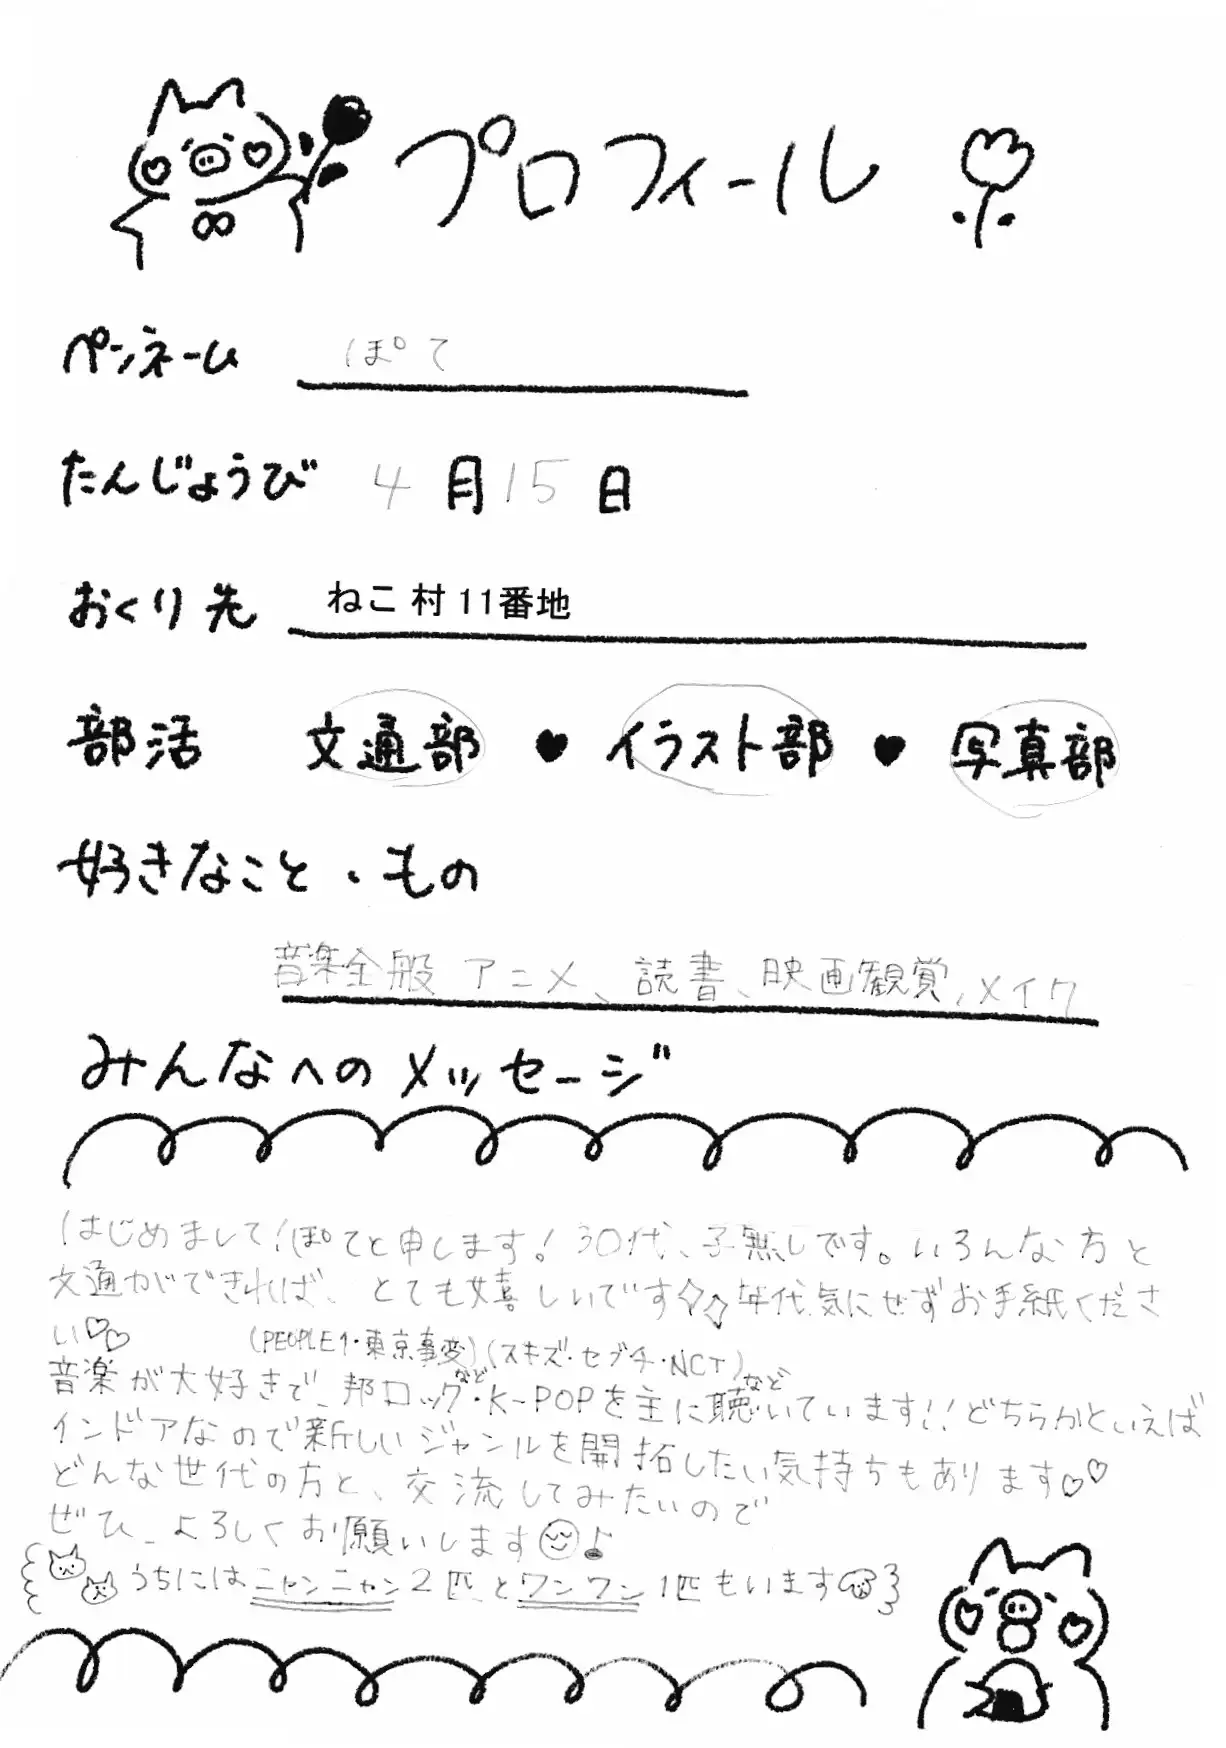 プロフィール
ペンネーム ぽて
たんじょうび 4月15日
おくり先 ねこ村11番地
部活 文通部 ♥ イラスト部 ♥ 写真部
好きなこと・もの
音楽全般 アニメ、読書、映画観賞、メイク
みんなへのメッセージ
はじめまして!ぽてと申します!30代、子無しです。いろんな方と
文通ができれば、とても嬉しいです年代気にせずお手紙くださ
い♡♡
(PEOPLE1・東京事変)(スキズ・セブチ・NCT)
音楽が大好きで、邦ロックなど・K-POPを主に聴いています!!などどちらかといえば
インドアなので新しいジャンルを開拓したい気持ちもあります♡♡
どんな世代の方と、交流してみたいので
ぜひ、よろしくお願いします♪
うちにはニャンニャン2匹とワンワン1匹もいます